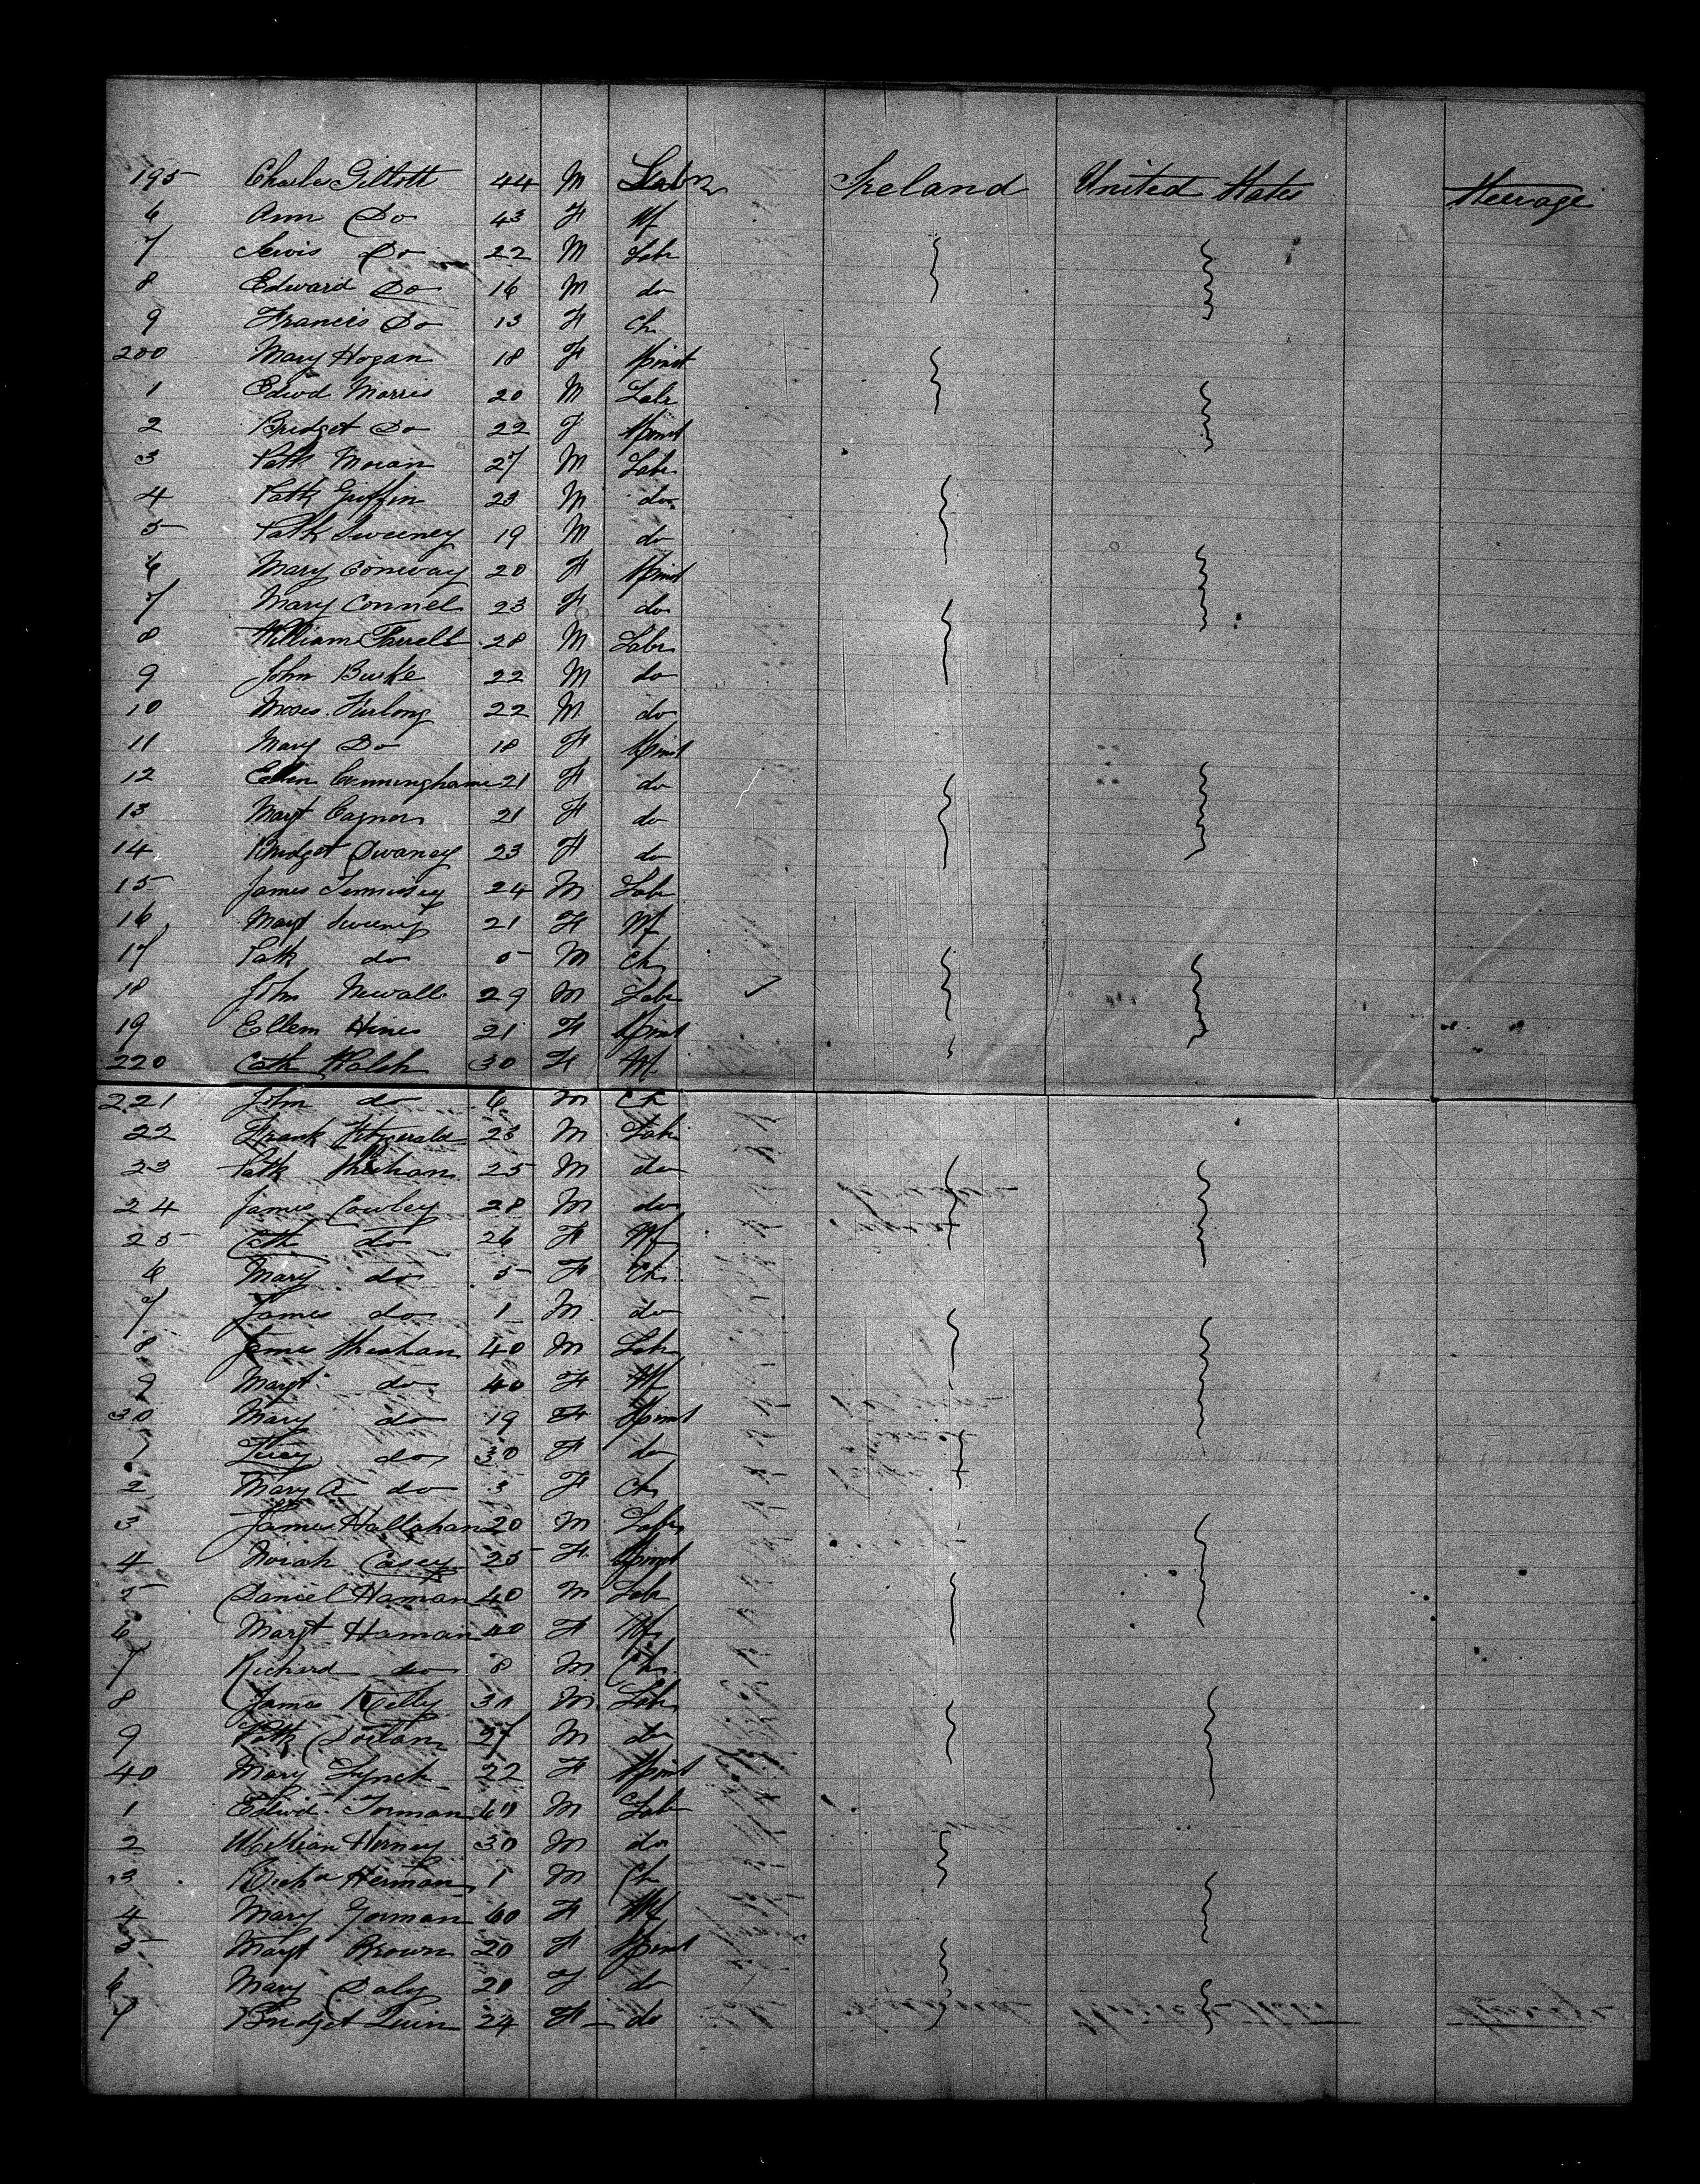 195 Charles Giltott 44 M Labr Ireland United States Steerage
6 Ann Do 43 F Wf
7 Lewis Do 22 M Labr
8 Edward Do 16 M do
9 Francis Do 13 F Ch
200 Mary Hogan 18 F Spinst
1 Edwd Morris 20 M Labr
2 Bridget Do 22 F Spinst
3 Patk Moran 27 M Labr
4 Patk Griffin 23 M do
5 Patk Sweeney 19 M do
6 Mary Conway 20 F Spinst
7 Mary Connel 23 F do
8 William Farrell 28 M Labr
9 John Burke 22 M do
10 Moses Furlong 22 M do
11 Mary Do 18 F Spinst
12 Ellen Cunninghame 21 F do
13 Margt 21 F do
14 Bridget Swaney 23 F do
15 James 24 M Labr
16 Margt Sweeney 21 F Wf
17 Patk do 5 M Ch
18 John Newall 29 M Labr
19 Ellem Hines 21 F Spinst
220 Cath Walsh 30 F Wf
221 John do 6 M Ch
22 Frank Fitzgerald 23 M Labr
23 Patk Sheehan 25 M do
24 James Cowley 28 M do
25 Cath do 26 F Wf
6 Mary do 5 F Ch
7 James do 1 M do
8 James Sheahan 40 M Labr
9 Margt do 40 F Wf
30 Mary do 19 F Spinst
1 Lucy do 30 F do
2 Mary A do 3 F Ch
3 James Hallahan 20 M Labr
4 Norah Casey 25 F Spinst
5 Daniel Haman 40 M Labr
6 Margt Haman 40 F Wf
7 Richard do 8 M Ch
8 James Kelly 30 M Labr
9 Patk 27 M do
40 Mary Lynch 22 F Spinst
1 Edwd Gorman 60 M Labr
2 William 30 M do
3 Richd Herman 1 M Ch
4 Mary Gorman 60 F Wf
5 Margt Brown 20 F Spinst
6 Mary Daly 20 F do
7 Bridget Quin 24 F do